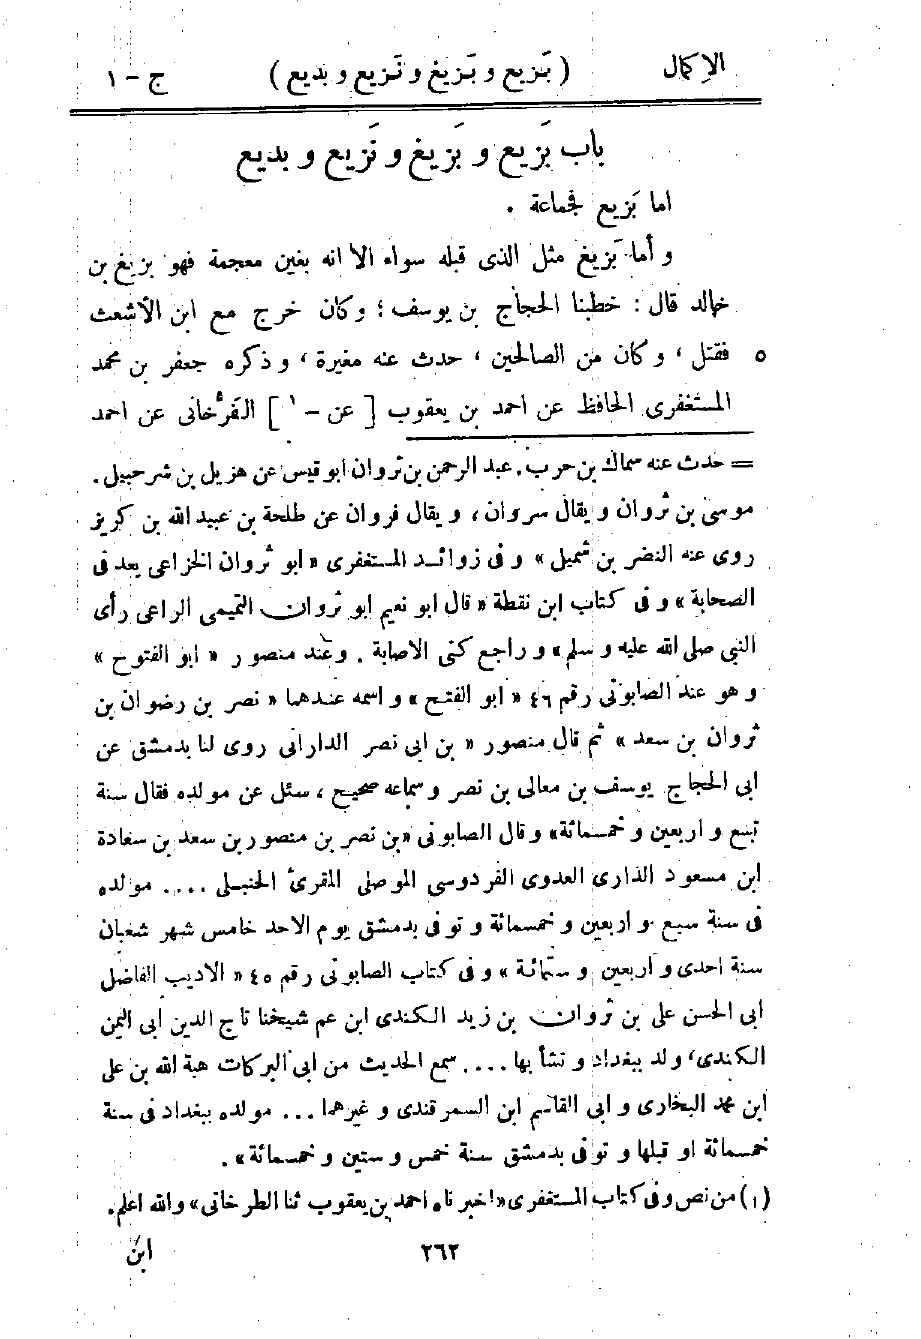 الإكمال ( بَزيع و بَزيغ و نَزيع و بديع ) ج – ١
باب بَزيع و بَزيغ و نَزيع و بديع
اما بَزيع فجماعة .
و أما بَزيغ مثل الذى قبله سواء الا انه بغين معجمة فهو بزيغ بن
خالد قال : خطبنا الحجاج بن يوسف ؛ وكان خرج مع ابن الأشعث
فقتل ، وكان من الصالحين ، حدث عنه مغيرة ، و ذكره جعفر بن محمد ٥
المستغفرى الحافظ عن احمد بن يعقوب [ عن – ١ ] الفَرُّخانى عن احمد
= حدث عنه سماك بن حرب . عبد الرحمن بن ثروان ابو قيس عن هزيل بن شرحبيل .
موسى بن ثروان و يقال سروان ، و يقال فروان عن طلحة بن عبيد الله بن كريز
روى عنه النضر بن شميل » و فى زوائد المستغفرى « ابو ثروان الخزاعى يعد فى
الصحابة » و فى كتاب ابن نقطة « قال ابو نعيم ابو ثروان التميمى الراعى رأى
النبى صلى الله عليه و سلم » و راجع كنى الاصابة . وعند منصور « ابو الفتوح »
و هو عند الصابونى رقم ٤٦ « ابو الفتح » و اسمه عندهما « نصر بن رضوان بن
ثروان بن سعد » ثم قال منصور « بن ابى نصر الدارانى روى لنا بدمشق عن
ابى الحجاج يوسف بن معالى بن نصر و سماعه صحيح ، سئل عن مولده فقال سنة
تسع و اربعين و خمسمائة» و قال الصابونى «بن نصر بن منصور بن سعد بن سعادة
ابن مسعود الدارى العدوى الفردوسى الموصلى المقرئ الحنبلى .... مولده
فى سنة سبع و اربعين و خمسمائة و توفى بدمشق يوم الاحد خامس شهر شعبان
سنة احدى و اربعين و ستمائة » و فى كتاب الصابونى رقم ٤٥ « الاديب الفاضل
ابى الحسن على بن ثروان بن زيد الكندى ابن عم شيخنا تاج الدين ابى اليمن
الكندى ، ولد ببغداد و نشأ بها .... سمع الحديث من ابى البركات هبة الله بن على
ابن محمد البخارى و ابى القاسم ابن السمرقندى و غيرهما ... مولده ببغداد فى سنة
خمسمائة او قبلها و توفى بدمشق سنة خمس و ستين و خمسمائة » .
(١) من نص و فى كتاب المستغفرى «اخبرناه احمد بن يعقوب ثنا الطرخانى» والله اعلم .
٢٦٢ ابن